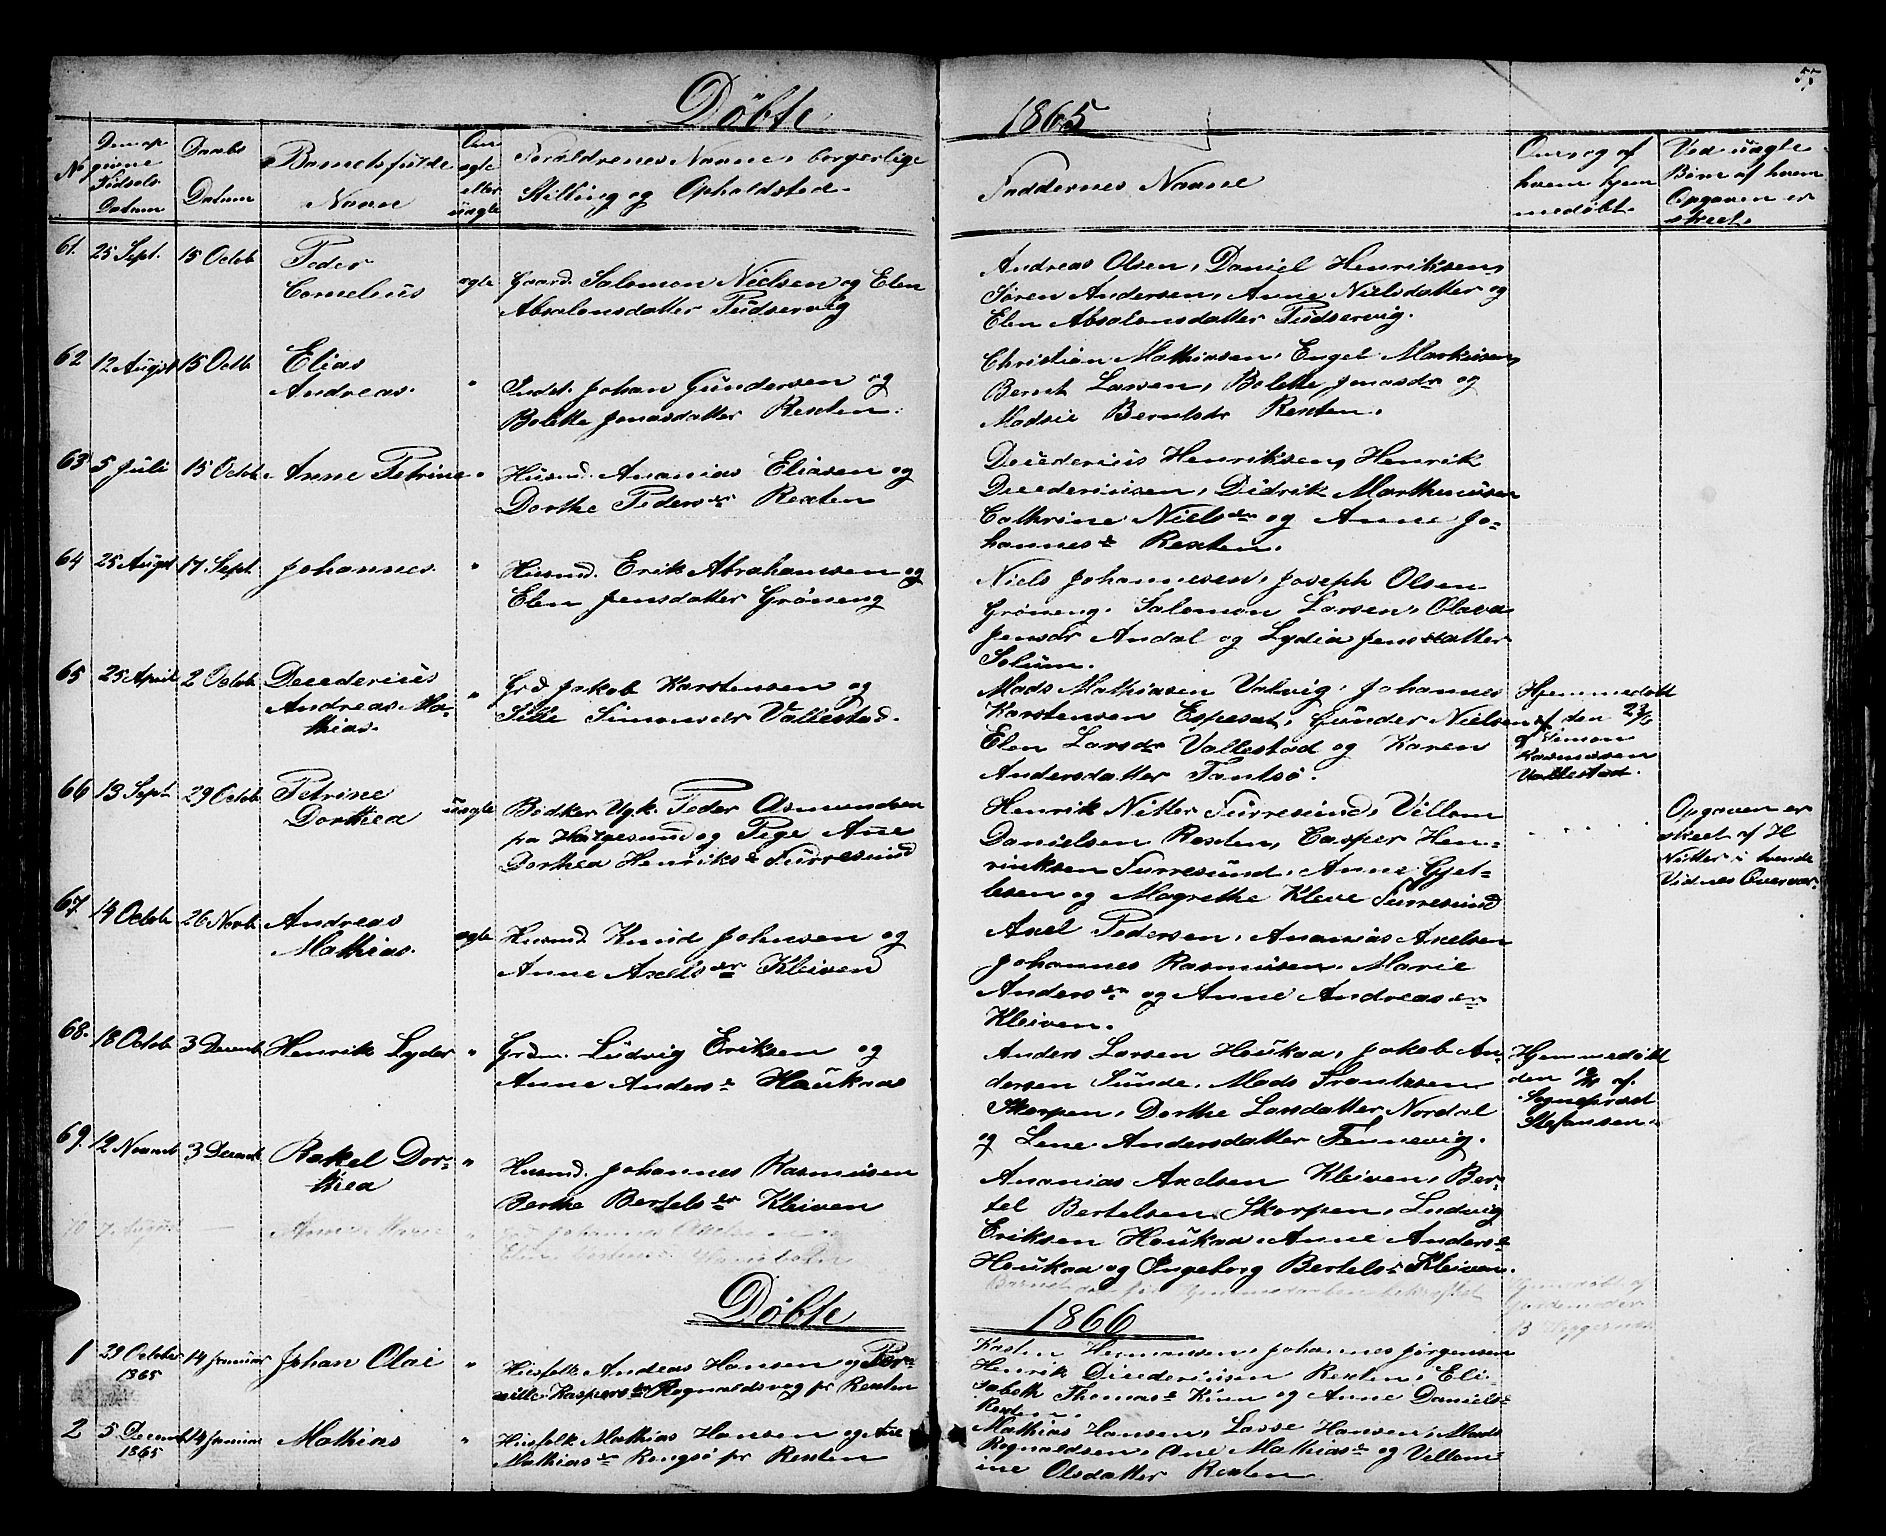 57
Döbte
1865
No
Den op-
givne
Födsels
Datum
Daabs
Datum
Barnets fulde
Navn
Om
ægte
eller
uægte
Foraldrenes Navne, borgerlige
Stilling og Opholdsted.
Faddernes Navne
Om og af
hvem hjem
medöbt.
Ved uægte
Börn af hvem
Opgaven er
skeet.
61. 25 Sept. 15 Octob Peder
Cornelius
ægte Gaard. Salomon Nielsen og Elen
Absalonsdatter Tudservig
Andreas Olsen, Daniel Henriksen,
Sören Andersen, Anne Nielsdatter og
Elen Absalonsdatter Tudservig.
62 12 August 15 Octb Elias
Andreas.
" Indst. Johan Gundersen og
Bolette Jonasdatter Rexten.
Christian Mathiasen, Engel Markusen,
Bernt Larsen, Bolette Jonasdr og
Madsie Berntsdr Rexten.
63 5 Juli 15 Octob. Anne Petrine " Husmd. Ananias Eliasen og
Dorthe Pedersdr Rexten
Deederius Henriksen, Henrik
Deederiusen, Didrik Marthinusen
Cathrine Nielsdr og Anne Jo-
hannesdr Rexten.
64 25 Augst 17 Sept. Johannes. " Husmd. Erik Abrahamsen og
Elen Jensdatter Gröneng
Niels Johannesen, Joseph Olsen
Gröneng, Salomon Larsen, Olava
Jensdr Andal og Lydia Jensdatter
Solum.
65 25 April 2 Octob Deederius
Andreas Ma-
thias.
" Grd. Jakob Karstensen og
Sille Simonsdr Vallestad.
Mads Mathiasen Valvig, Johannes
Karstensen Espeset, Gunder Nielsen
Elen Larsdr Vallestad og Karen
Andersdatter Tansö.
Hjemmedöbt
den 23/5
af Simon
Rasmusen
Vallestad.
66 13 Sept 29 Octob Petrine
Dorthea
uægte Bödker Ugk. Peder Asmundsen
fra Haugesund og Pige Ane
Dorthea Henriksdr Furresund
Henrik Nitter Furresund, Villom
Danielsen Rexten, Casper Hen-
riksen Furresund, Anne Gjet-
lesen og Magrethe Kleve Furresund
Opgaven er
skeet af H
Nitter i tvende
Vidnes Overvær.
67. 14 Octob 26 Novb Andreas
Mathias.
ægte Husmd. Knud Johnsen og
Anne Axelsdr Kleiven
Axel Pedersen, Ananias Axelsen
Johannes Rasmusen, Marie
Andersdr og Anne Andreasdr
Kleiven.
68. 18 Octob 3 Decemb Henrik Lyder " Grdm. Ludvig Eriksen og
Anne Andersdr Haukaa
Anders Larsen Houkaa, Jakob An-
dersen Sunde, Mads Frantzsen
Skorpen, Dorthe Larsdatter Nordal
og Lene Andersdatter Fennevig.
Hjemmedöbt
den af
Sognepræst
Stefansen.
69. 12 Novemb 3 Decemb Rakel Dor-
thea
" Husmd. Johannes Rasmusen
Berthe Bertelsdr Kleiven
Ananias Axelsen Kleiven, Ber-
tel Bertelsen Skorpen, Ludvig
Eriksen Houkaa, Anne Andersdr
Houkaa og Ingeborg Bertelsdr Kleiven.
70 7 August — Anne Marie " Johannes
Barnet Hjemmedaaben bekræftet
Hjemdöbt af
Jordemoder
Döbte
1866
1 29 October
1865
14 Januar Johan Olai " Husfolk Andreas Hansen og Per-
nille Kaspersdr Rognaldsvog pr Rexten
Kasten Hermansen, Johannes Jörgensen
Henrik Diederiusen Rexten, Eli-
sabeth Thomasdr Kinn og Anne Danielsdr
Rexten.
2 5 Decemb
1865
14 Januar Mathias " Husfolk Mathias Hansen og Ane
Mathiasdr Rengsö pr Rexten
Mathias Hansen, Lasse Hansen, Mads
Rognaldsen, Ane Mathiasdr og Vellom-
ine Olsdatter Rexten